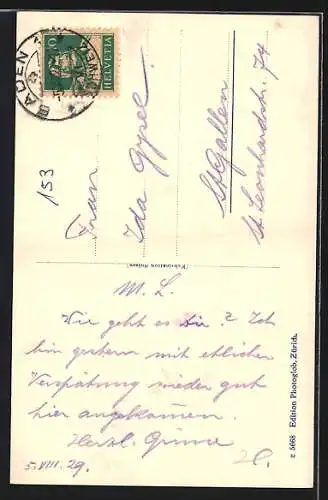 BADEN
(SCHWEIZ)
10
HELVETIA
153
Frau
Ida
St. Gallen
St. Leonhardstr. 74
M. L.
Wie geht es Dir? Ich
bin gestern mit etlicher
Verspätung wieder gut
hier angekommen.
Herzl. Grüsse
5.VIII.29.
c 5668 Edition Photoglob, Zürich.